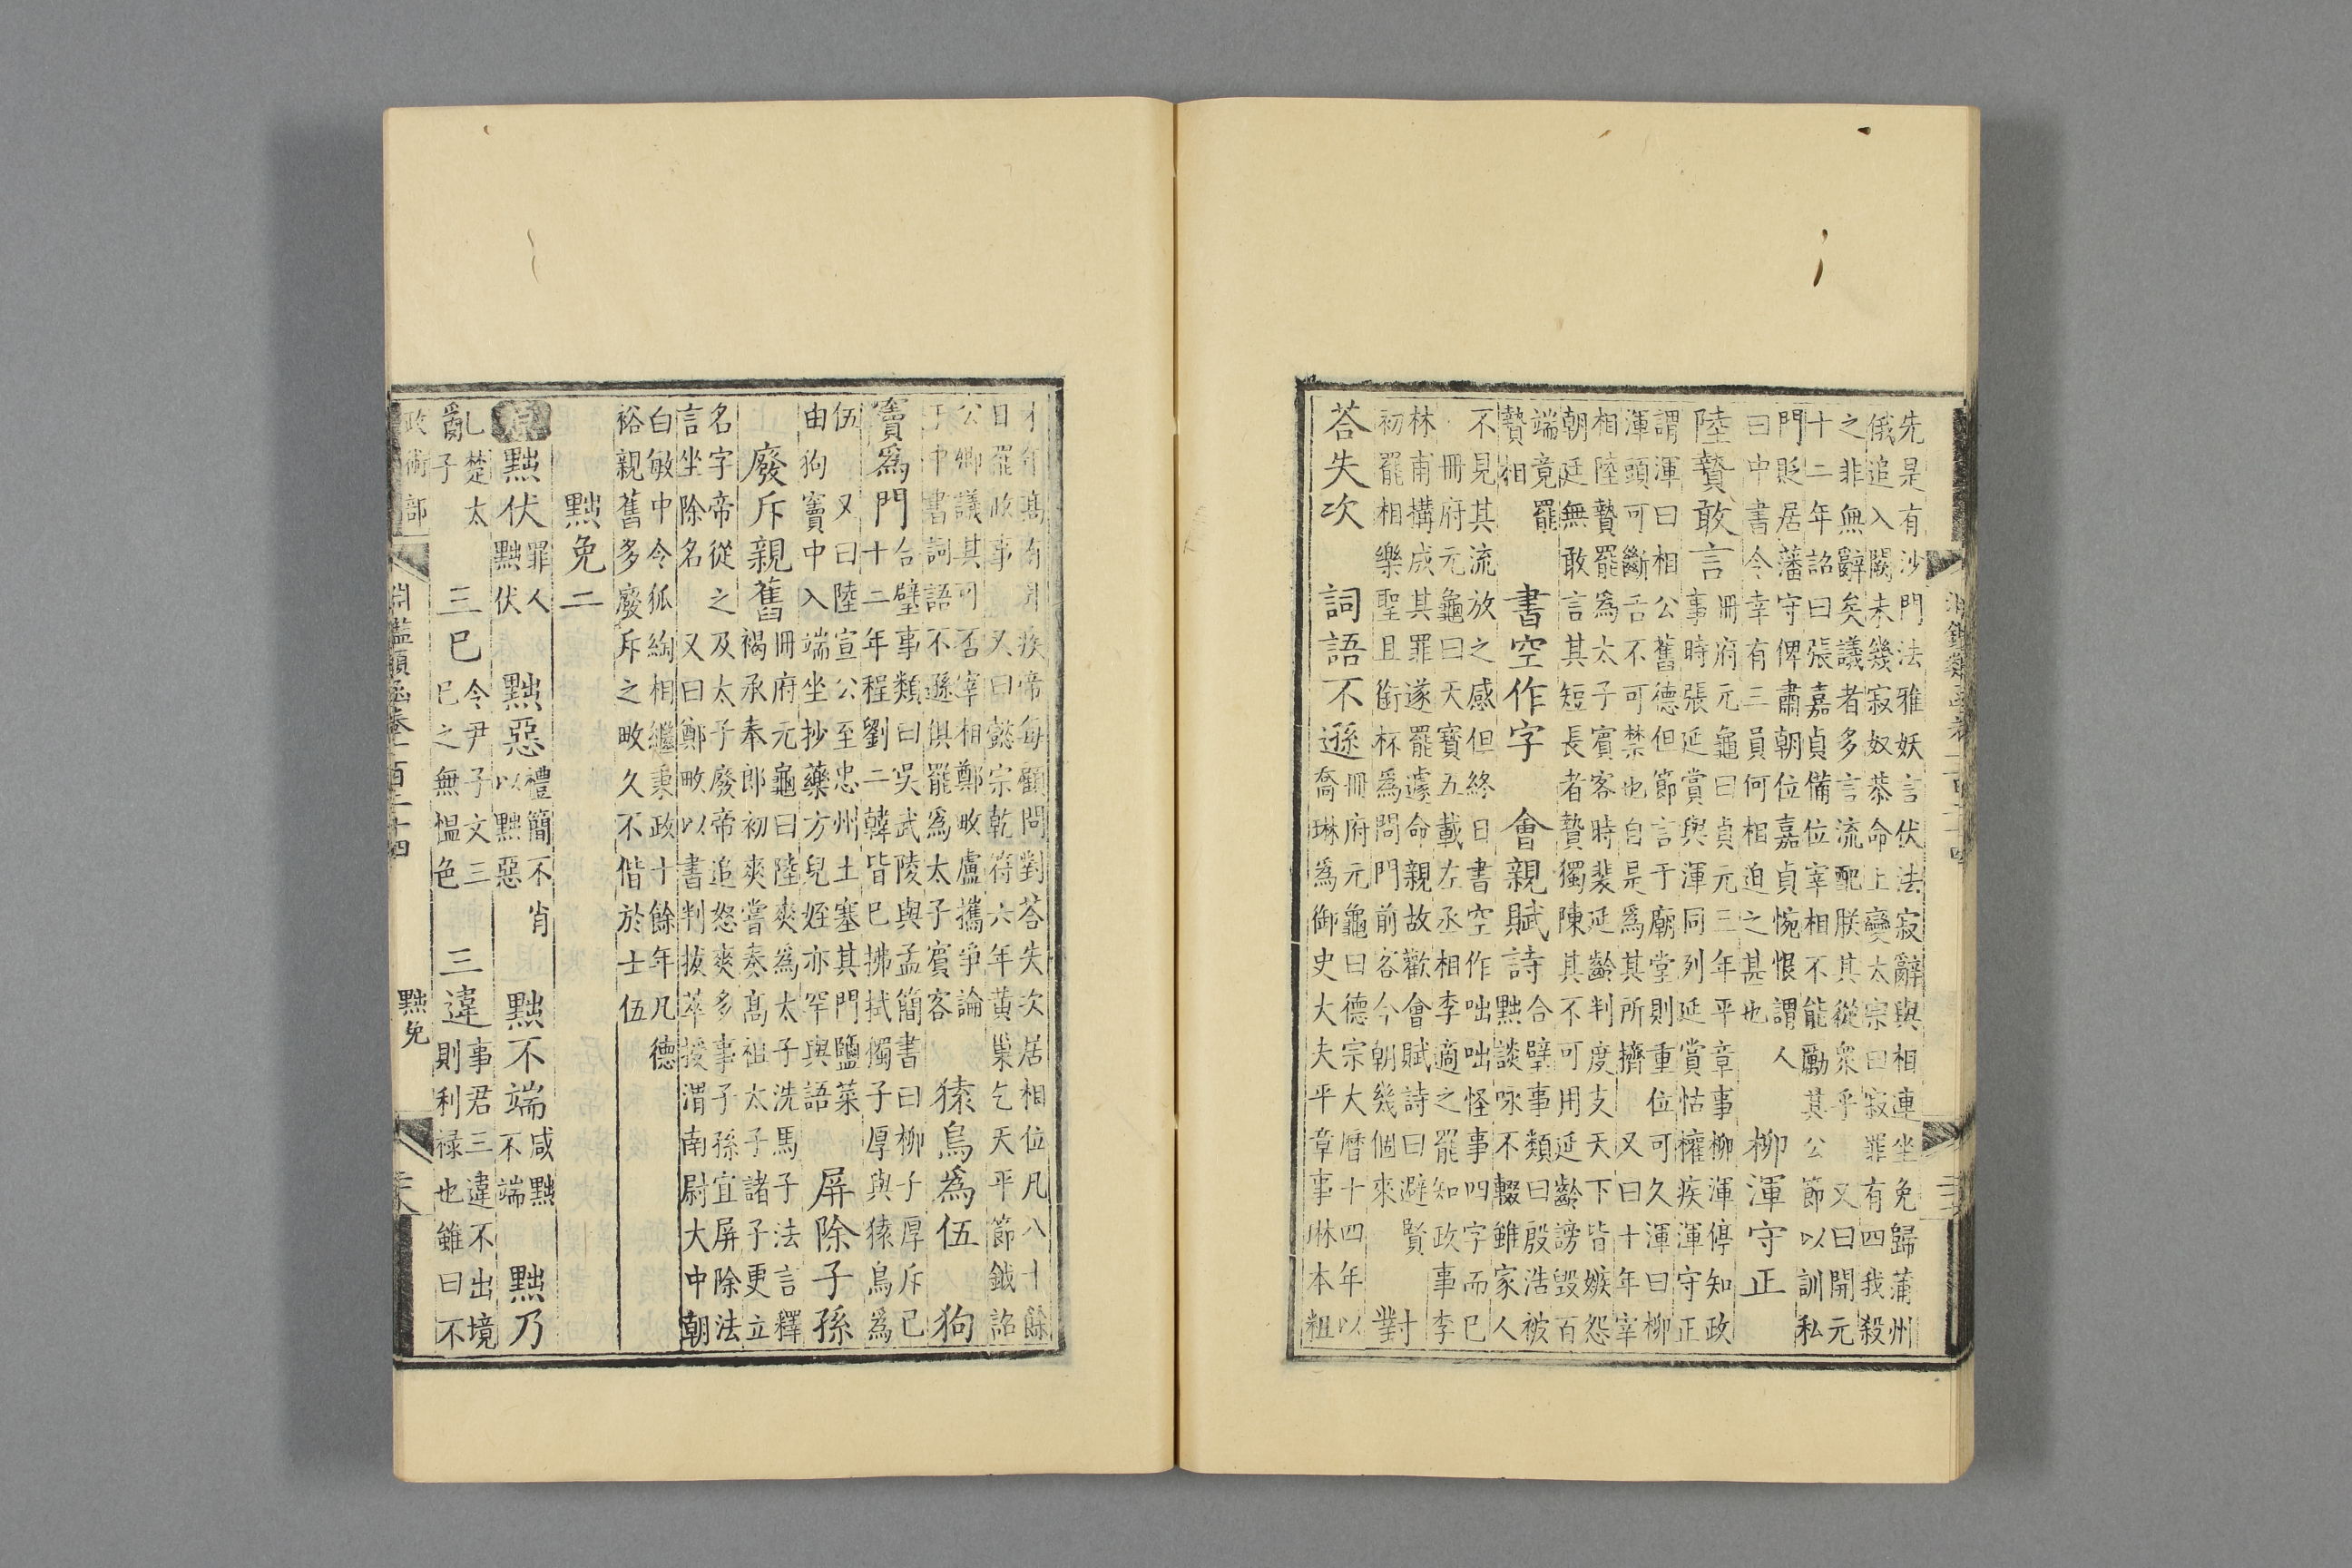 先是有沙門法雅妖言伏法寂辭與相連坐免歸蒲州
俄追入闕未幾寂奴恭命上變太宗曰寂罪有四我殺
之非無辭矣議者多言流配朕其從衆乎 又曰開元
十二年詔曰張嘉貞備位宰相不能勵其公節以訓私
門貶居藩守俾肅朝位嘉貞惋恨謂人
曰中書令幸有三員何相迫之甚也 柳渾守正
陸贄敢言
冊府元龜曰貞元三年平章事柳渾停知政
事時張延賞與渾同列延賞怙權疾渾守正
謂渾曰相公舊德但節言于廟堂則重位可久渾曰柳
渾頭可斷舌不可禁也自是爲其所擠 又曰十年宰
相陸贄罷爲太子賓客時裴延齡判度支天下皆嫉怨
朝廷無敢言其短長者贄獨陳其不可用延齡謗毀百
端竟罷
贄相
書空作字 會親賦詩
合璧事類曰殷浩被
黜談咏不輟雖家人
不見其流放之感但終日書空作咄咄怪事四字而已
冊府元龜曰天寶五載左丞相李適之罷知政事李
林甫構成其罪遂罷遽命親故歡會賦詩曰避賢
初罷相樂聖且銜杯爲問門前客今朝幾個來
對
答失次 詞語不遜
冊府元龜曰德宗大曆十四年以
喬琳爲御史大夫平章事琳本粗
疾帝每顧問對答失次居相位凡八十餘
日罷政事 又曰懿宗乾符六年黄巢乞天平節鉞詔
公卿議其可否宰相鄭畋盧攜爭論
于中書詞語不遜俱罷爲太子賓客
猿鳥爲伍 狗
竇爲門
合璧事類曰吳武陵與孟簡書曰柳子厚斥已
十二年程劉二韓皆巳拂拭獨子厚與猿鳥爲
伍 又曰陸宣公至忠州土塞其門鹽菜
由狗竇中入端坐抄藥方兒姪亦罕與語
屏除子孫
廢斥親舊
冊府元龜曰陸爽爲太子洗馬子法言釋
褐承奉郎初爽嘗奏高祖太子諸子更立
名字帝從之及太子廢帝追怒爽多事子孫宜屏除法
言坐除名 又曰鄭畋以書判拔萃授渭南尉大中朝
白敏中令狐綯相繼秉政十餘年凡德
裕親舊多廢斥之畋久不偕於士伍
黜免二
黜伏
罪人
黜伏
黜惡
禮簡不肖
以黜惡
黜不端
咸黜
不端
黜乃
亂
乱楚太
子
三已
令尹子文三
已之無慍色
三違
事君三違不出境
則利禄也雖曰不
政術部 淵鑑類函卷一百二十四 黜免